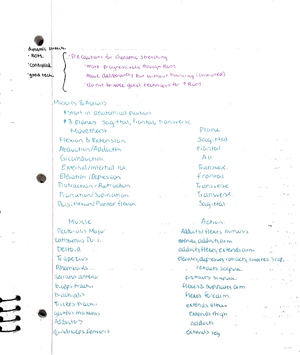 dynamic stretch
· ROM
· controlled
· good tech
· Precautions for Dynamic Stretching
· move progressively through ROM
· move deliberately but without bouncing (controlled)
· do not forsake good technique for ↑ ROM
Muscles & Actions
* start in anatomical position
* 3 planes: sagittal, frontal, transverse
Movement Plane
Flexion & Extension Sagittal
Abduction/Adduction Frontal
Circumduction All
External/Internal rot. Transverse
Elevation/Depression Frontal
Protraction/Retraction Transverse
Pronation/Supination Transverse
Dorsiflexion/Plantar flexion Sagittal
Muscle Action
Pectoralis Major Adducts/flexes humerus
Latissimus Dorsi
Deltoid
Trapezius
Rhomboids retracts scapula
Serratus anterior protracts scapula
biceps brachii
brachialis flexes forearm
triceps brachii
gluteus maximus extends thigh
Adductors adducts
quadriceps femoris extends leg